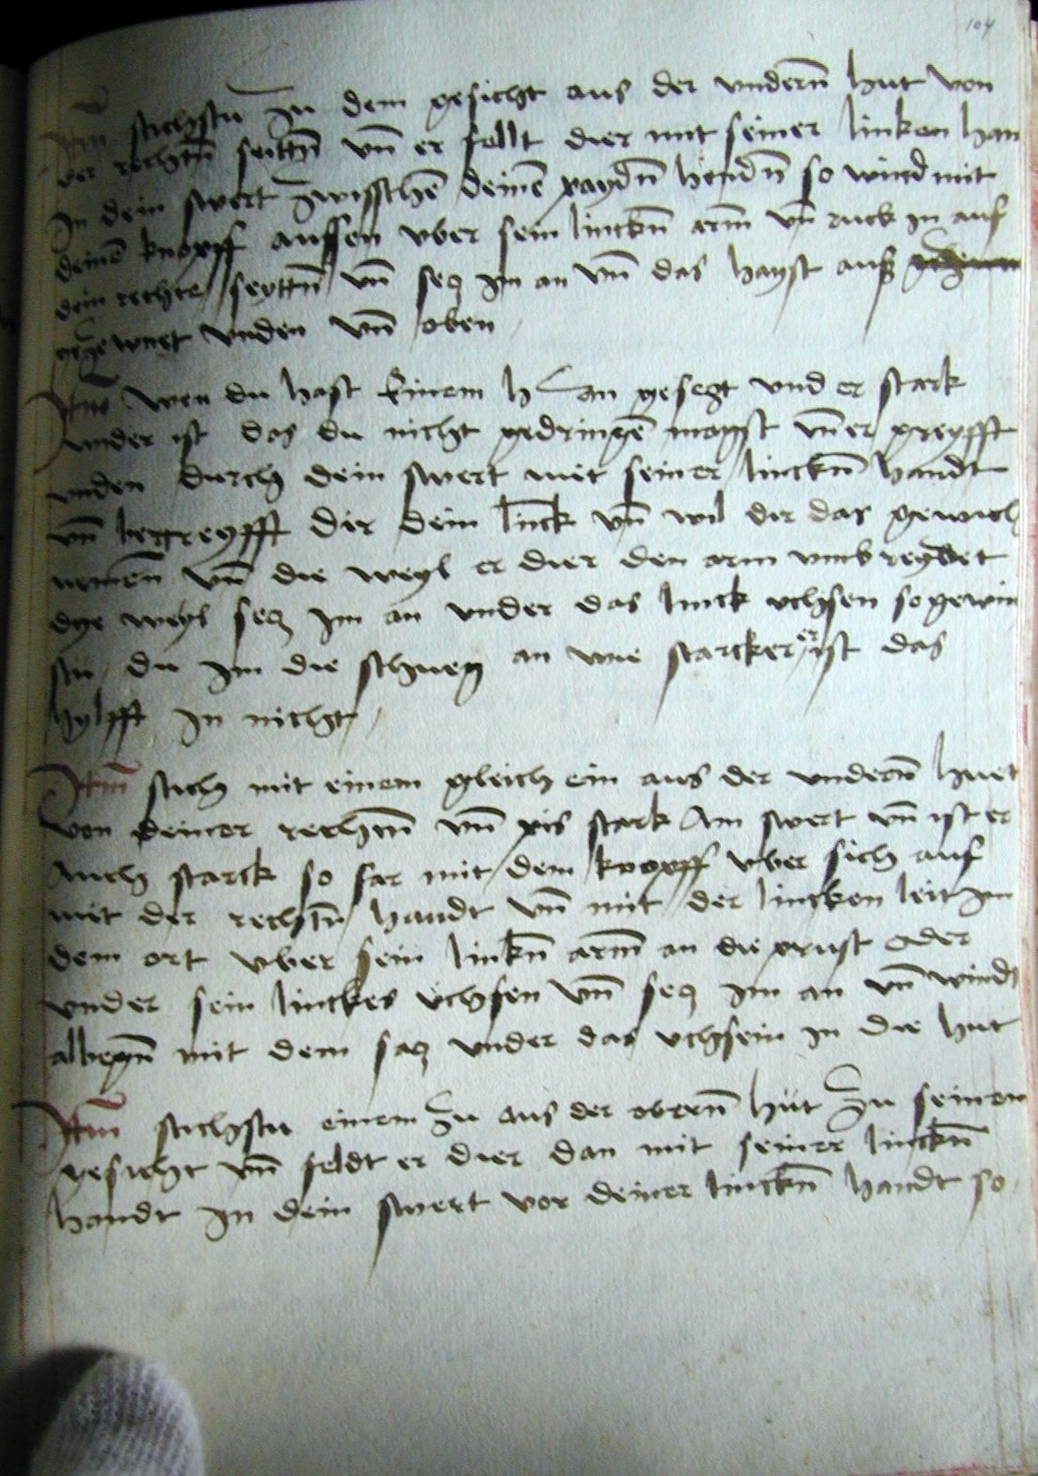 104
Itm̄ stichstu Zu dem gesicht aus der vnderñ hut von
der rechtñ seittñ vñ er fellt dier mit seiner linken han
In dein swert Zwisschē deinē paydñ hendñ so wind mit
deinē knopff aussen vber sein linckñ arm̄ vñ ruck in auf
dein rechte seyttñ vñ secz im an vñ das hayst auß
vnden vñ oben
Itm̄ wen du hast Einem h an gesetzt vnd er stark
wider ist das du nicht gedringē magst vñ er greyfft
vnden durch dein swert mit seiner linckñ handt
vñ begreyfft dir dein linck vñ wil dir das gewich
nemen vñ die weyl er dier den arm vmb reydet
dye weyl secz Im an vnder das linck vchsen so gewin
stu du Im die schueg an wie starcker er ist das
hylfft In nicht
Itm̄ stich mit einem gleich ein aus der vnderñ huet
von deiner rechtñ vñ pis stark Am swert vñ ist er
Auch starck so far mit dem knopff vber sich auf
mit der rechtñ handt vñ mit der lincken leit im
dem ort vber sein linkñ arm̄ an die prust oder
vnder sein linckes vchsen vñ secz im an vñ windt
albegñ mit dem sacz vnder das vchsein in die hut
Itm̄ stichstu einem Zu aus der oberñ hut Zu seinem
gesicht vñ feldt er dier dan mit seiner linckñ
handt In dein swert vor deiner linckñ handt so